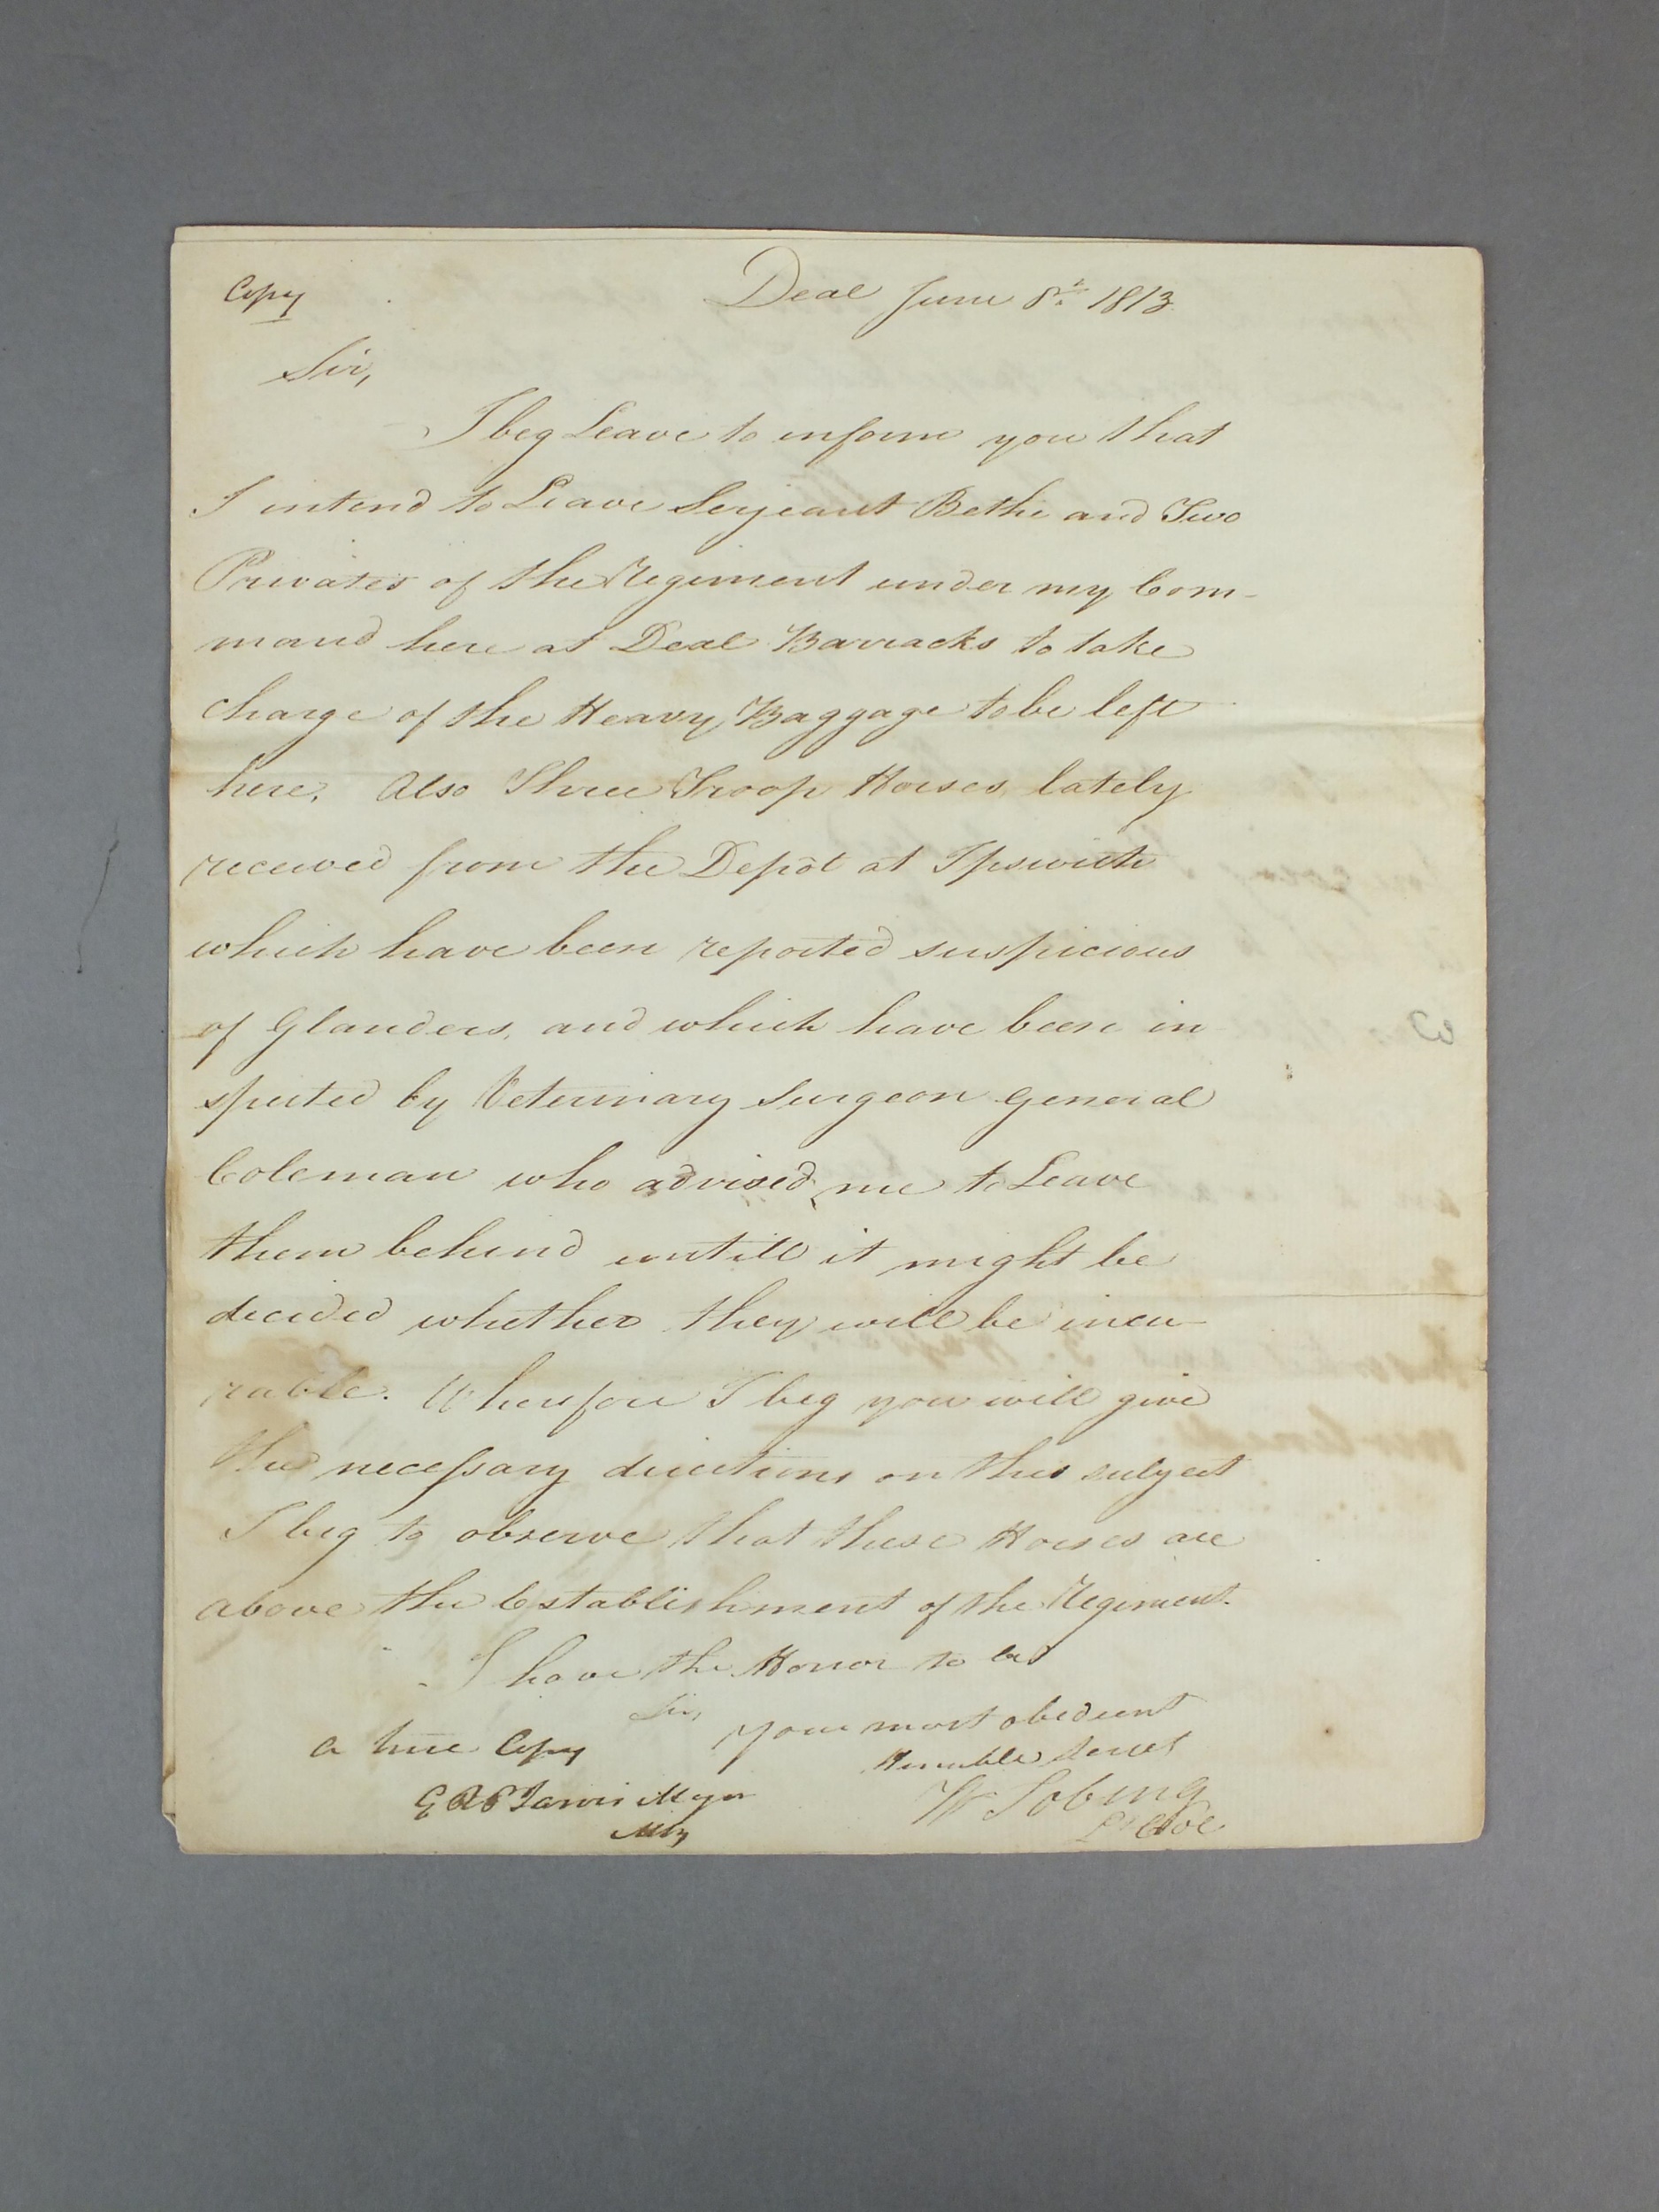 Copy
Deal June 8th 1813
Sir,
I beg Leave to inform you that
I intend to Leave Serjeant Bethe and Two
Privates of the Regiment under my Com-
mand here at Deal Barracks to take
charge of the Heavy Baggage to be left
here. Also Three Troop Horses lately
received from the Depôt at Ipswich
which have been reported suspicious
of Glanders, and which have been in
spected by Veterinary Surgeon General
Coleman who advised me to Leave
them behind untill it might be
decided whether they will be incu-
rable. Wherefore I beg you will give
the necessary directions on this subject
I beg to observe that these Horses are
above the Establishment of the Regiment.
I have the Honor to be
Sir,
your most obedient
Humble Servt
a true Copy
Major
Lt Col